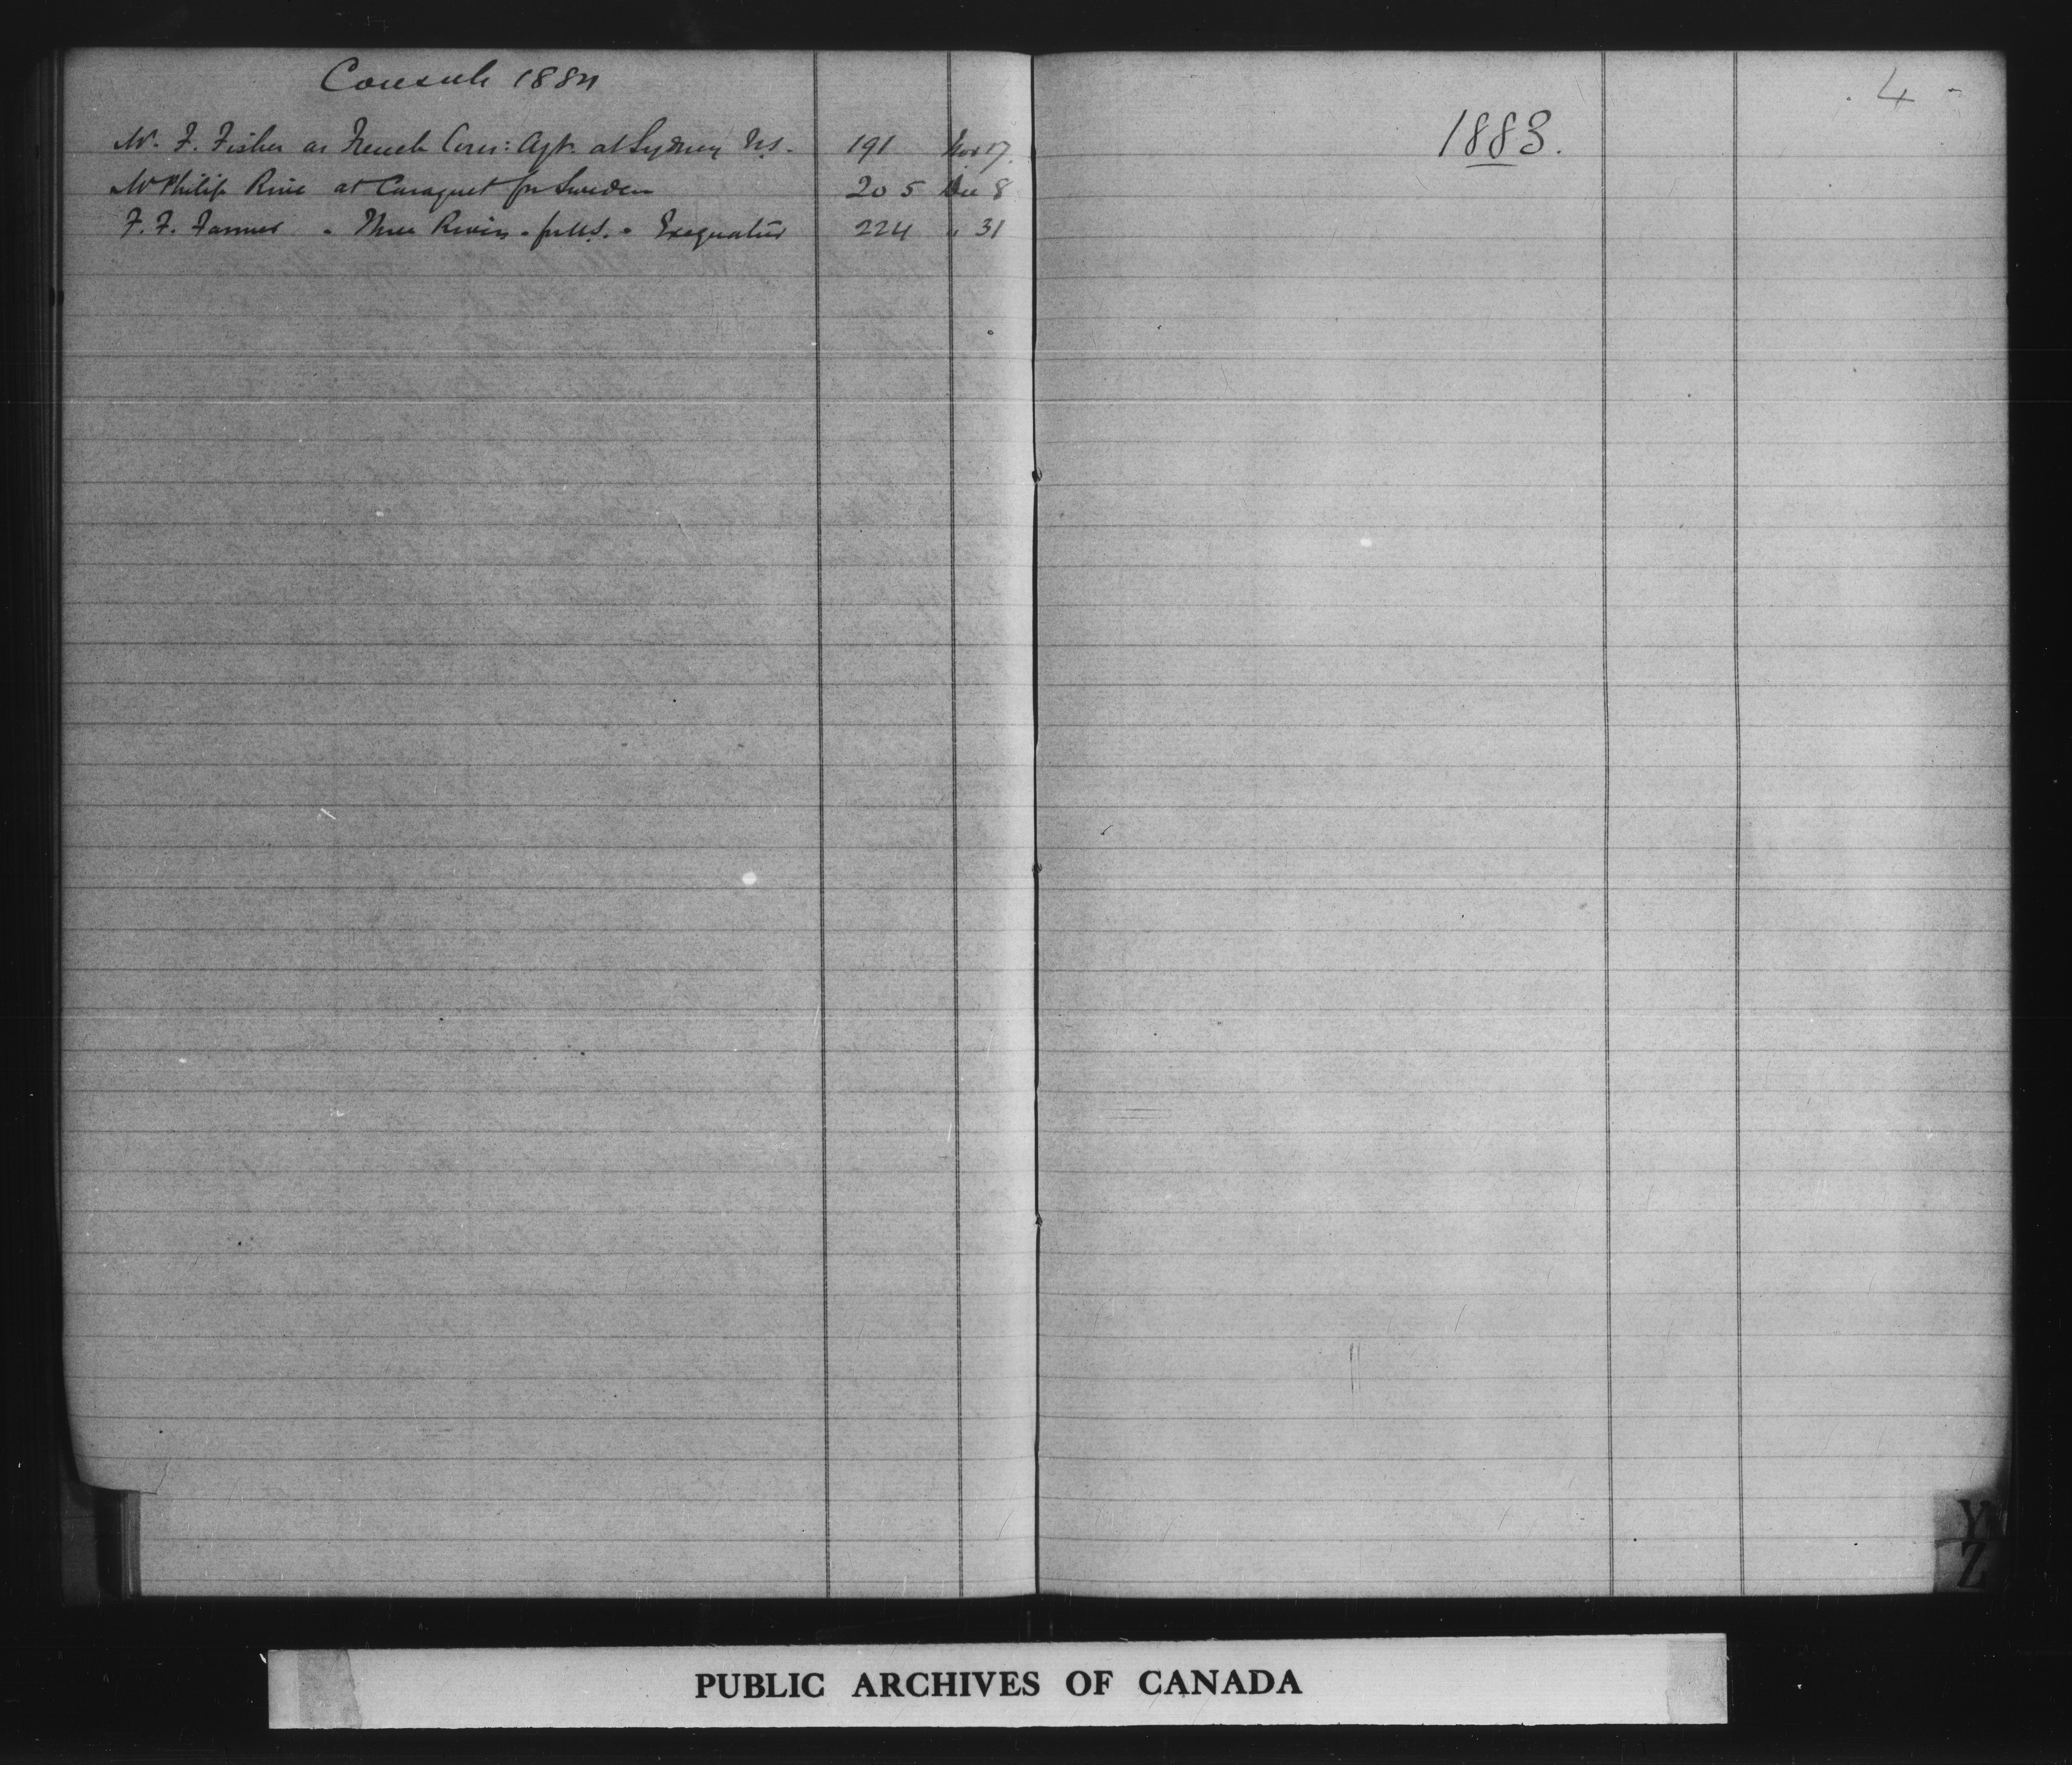 Consuls 1884
Mr. F. Fisher as French Cons: Agt. at Sydney N.S. 191 Nov 17.
Mr Philip Rive at Caraquet for Sweden 205 Dec 8
F. F. Farmer " Three Rivers " for U.S. " Exequatur 224 " 31
4
1883.
Y
Z
PUBLIC ARCHIVES OF CANADA